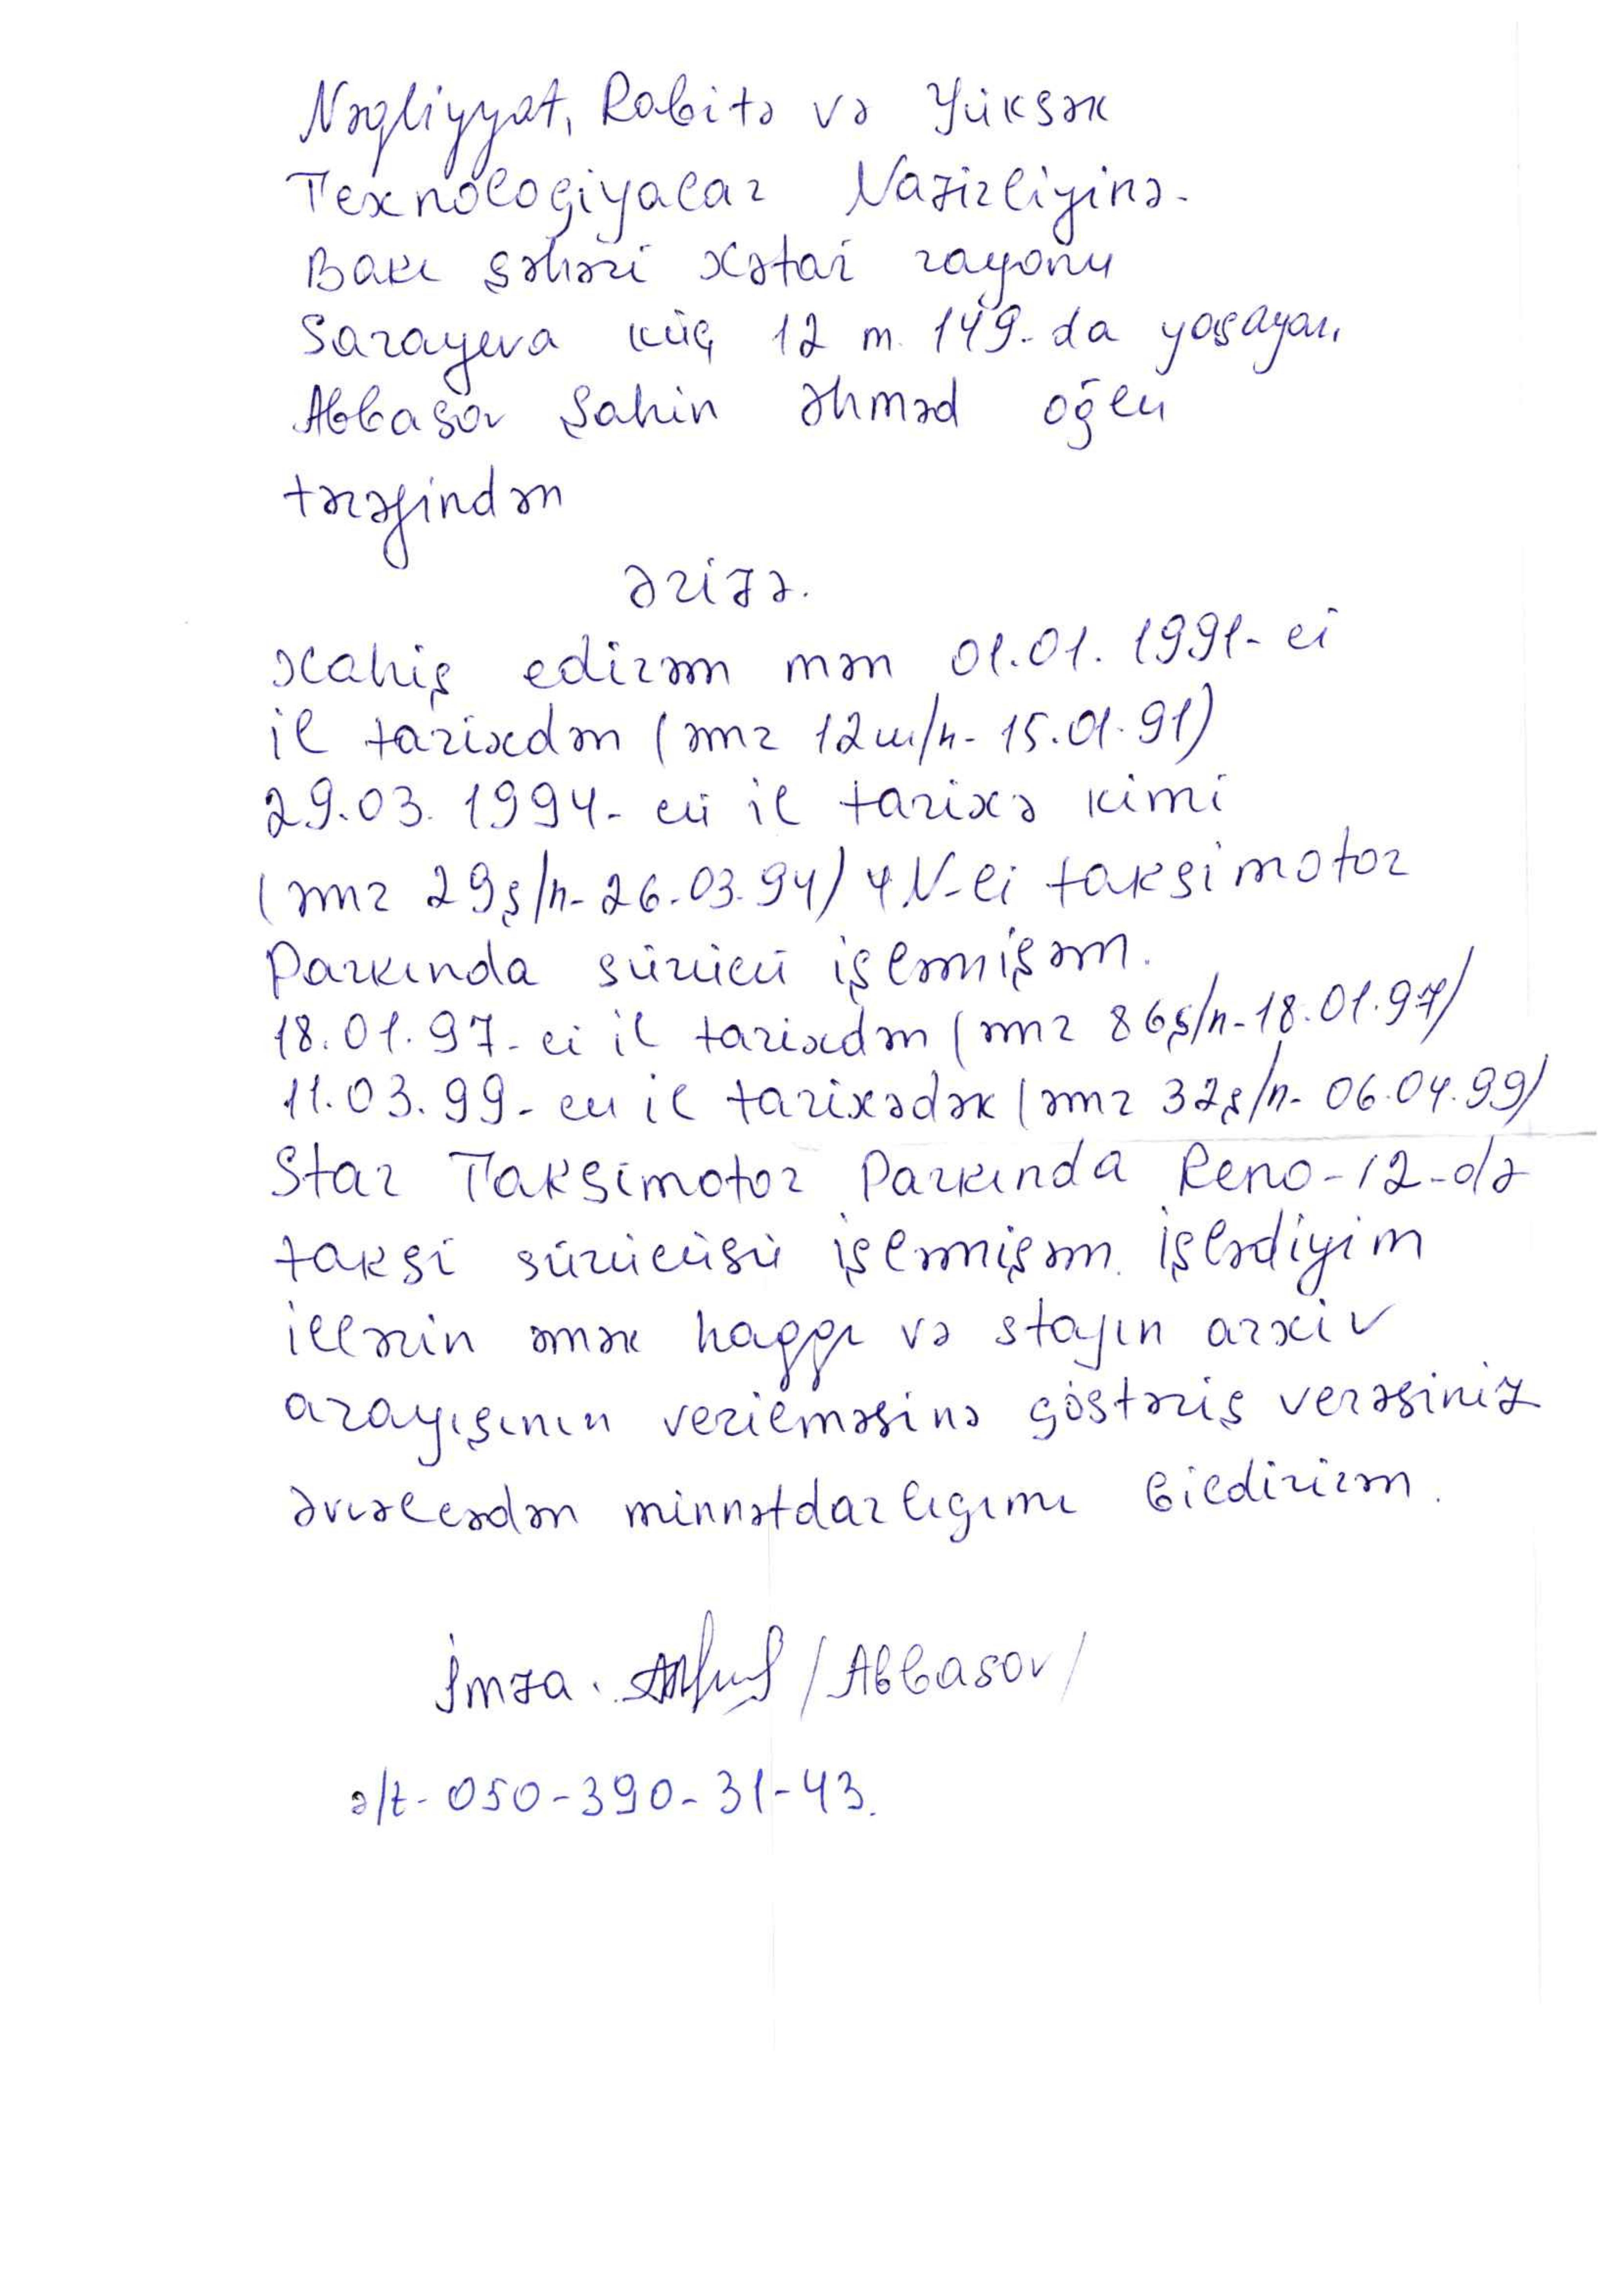 Nəqliyyat, Rabitə və Yüksək
Texnologiyalar Nazirliyinə.
Bakı şəhəri Xətai rayonu
Sarayeva küç 12 m. 149-da yaşayan
Abbasov Şahin Əhməd oğlu
tərəfindən
Ərizə.
Xahiş edirəm mən 01.01.1991-ci
il tarixdən (əmr 12ш/н-15.01.91)
29.03.1994-cü il tarixə kimi
(əmr 29ş/n-26.03.94) 4 N-ci taksimotor
Parkında sürücü işləmişəm.
18.01.97-ci il tarixdən (əmr 86ş/n-18.01.97)
11.03.99-cu il tarixədək (əmr 32ş/n-06.04.99)
Star Taksimotor Parkında Reno-12-də
taksi sürücüsü işləmişəm. İşlədiyim
illərin əmək haqqı və stajın arxiv
arayışının verilməsinə göstəriş verəsiniz
Əvvəlcədən minnətdarlıgımı bildirirəm.
İmza. /Abbasov/
ə/t-050-390-31-43.